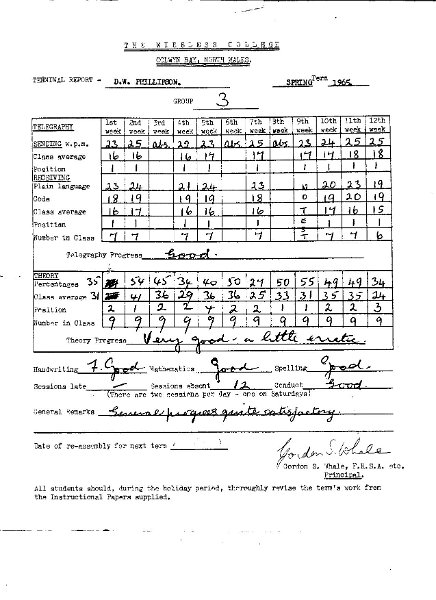 THE WIRELESS COLLEGE
COLWYN BAY, NORTH WALES.
TERMINAL REPORT - D.W. PHILLIPSON. SPRING Term 1965
GROUP 3
TELEGRAPHY 1st week 2nd week 3rd week 4th week 5th week 6th week 7th week 8th week 9th week 10th week 11th week 12th week
SENDING w.p.m. 23 25 abs. 22 23 abs. 25 abs 23 24 25 25
Class average 16 16 16 17 17 17 17 18 18
Position 1 1 1 1 1 1 1 1 1
RECEIVING
Plain language 23 24 21 24 23 20 23 19
Code 18 19 19 19 18 19 20 19
Class average 16 17 16 16 16 17 16 15
Position 1 1 1 1 1 1 1 1
Number in Class 7 7 7 7 7 7 7 6
Telegraphy Progress Good.
THEORY
Percentages 35 54 45 34 40 50 27 50 55 49 49 34
Class average 31 41 36 29 36 36 25 33 31 35 35 24
Position 2 1 2 2 2 2 1 1 2 2 3
Number in Class 9 9 9 9 9 9 9 9 9 9 9 9
Theory Progress Very good - a little erratic.
Handwriting F. Good Mathematics Good Spelling Good.
Sessions late Sessions absent 12 Conduct Good.
(There are two sessions per day - one on Saturdays)
General Remarks General progress quite satisfactory.
Date of re-assembly for next term
Gordon S. Whale
Gordon S. Whale, F.R.S.A. etc.
Principal.
All students should, during the holiday period, thoroughly revise the term's work from
the Instructional Papers supplied.